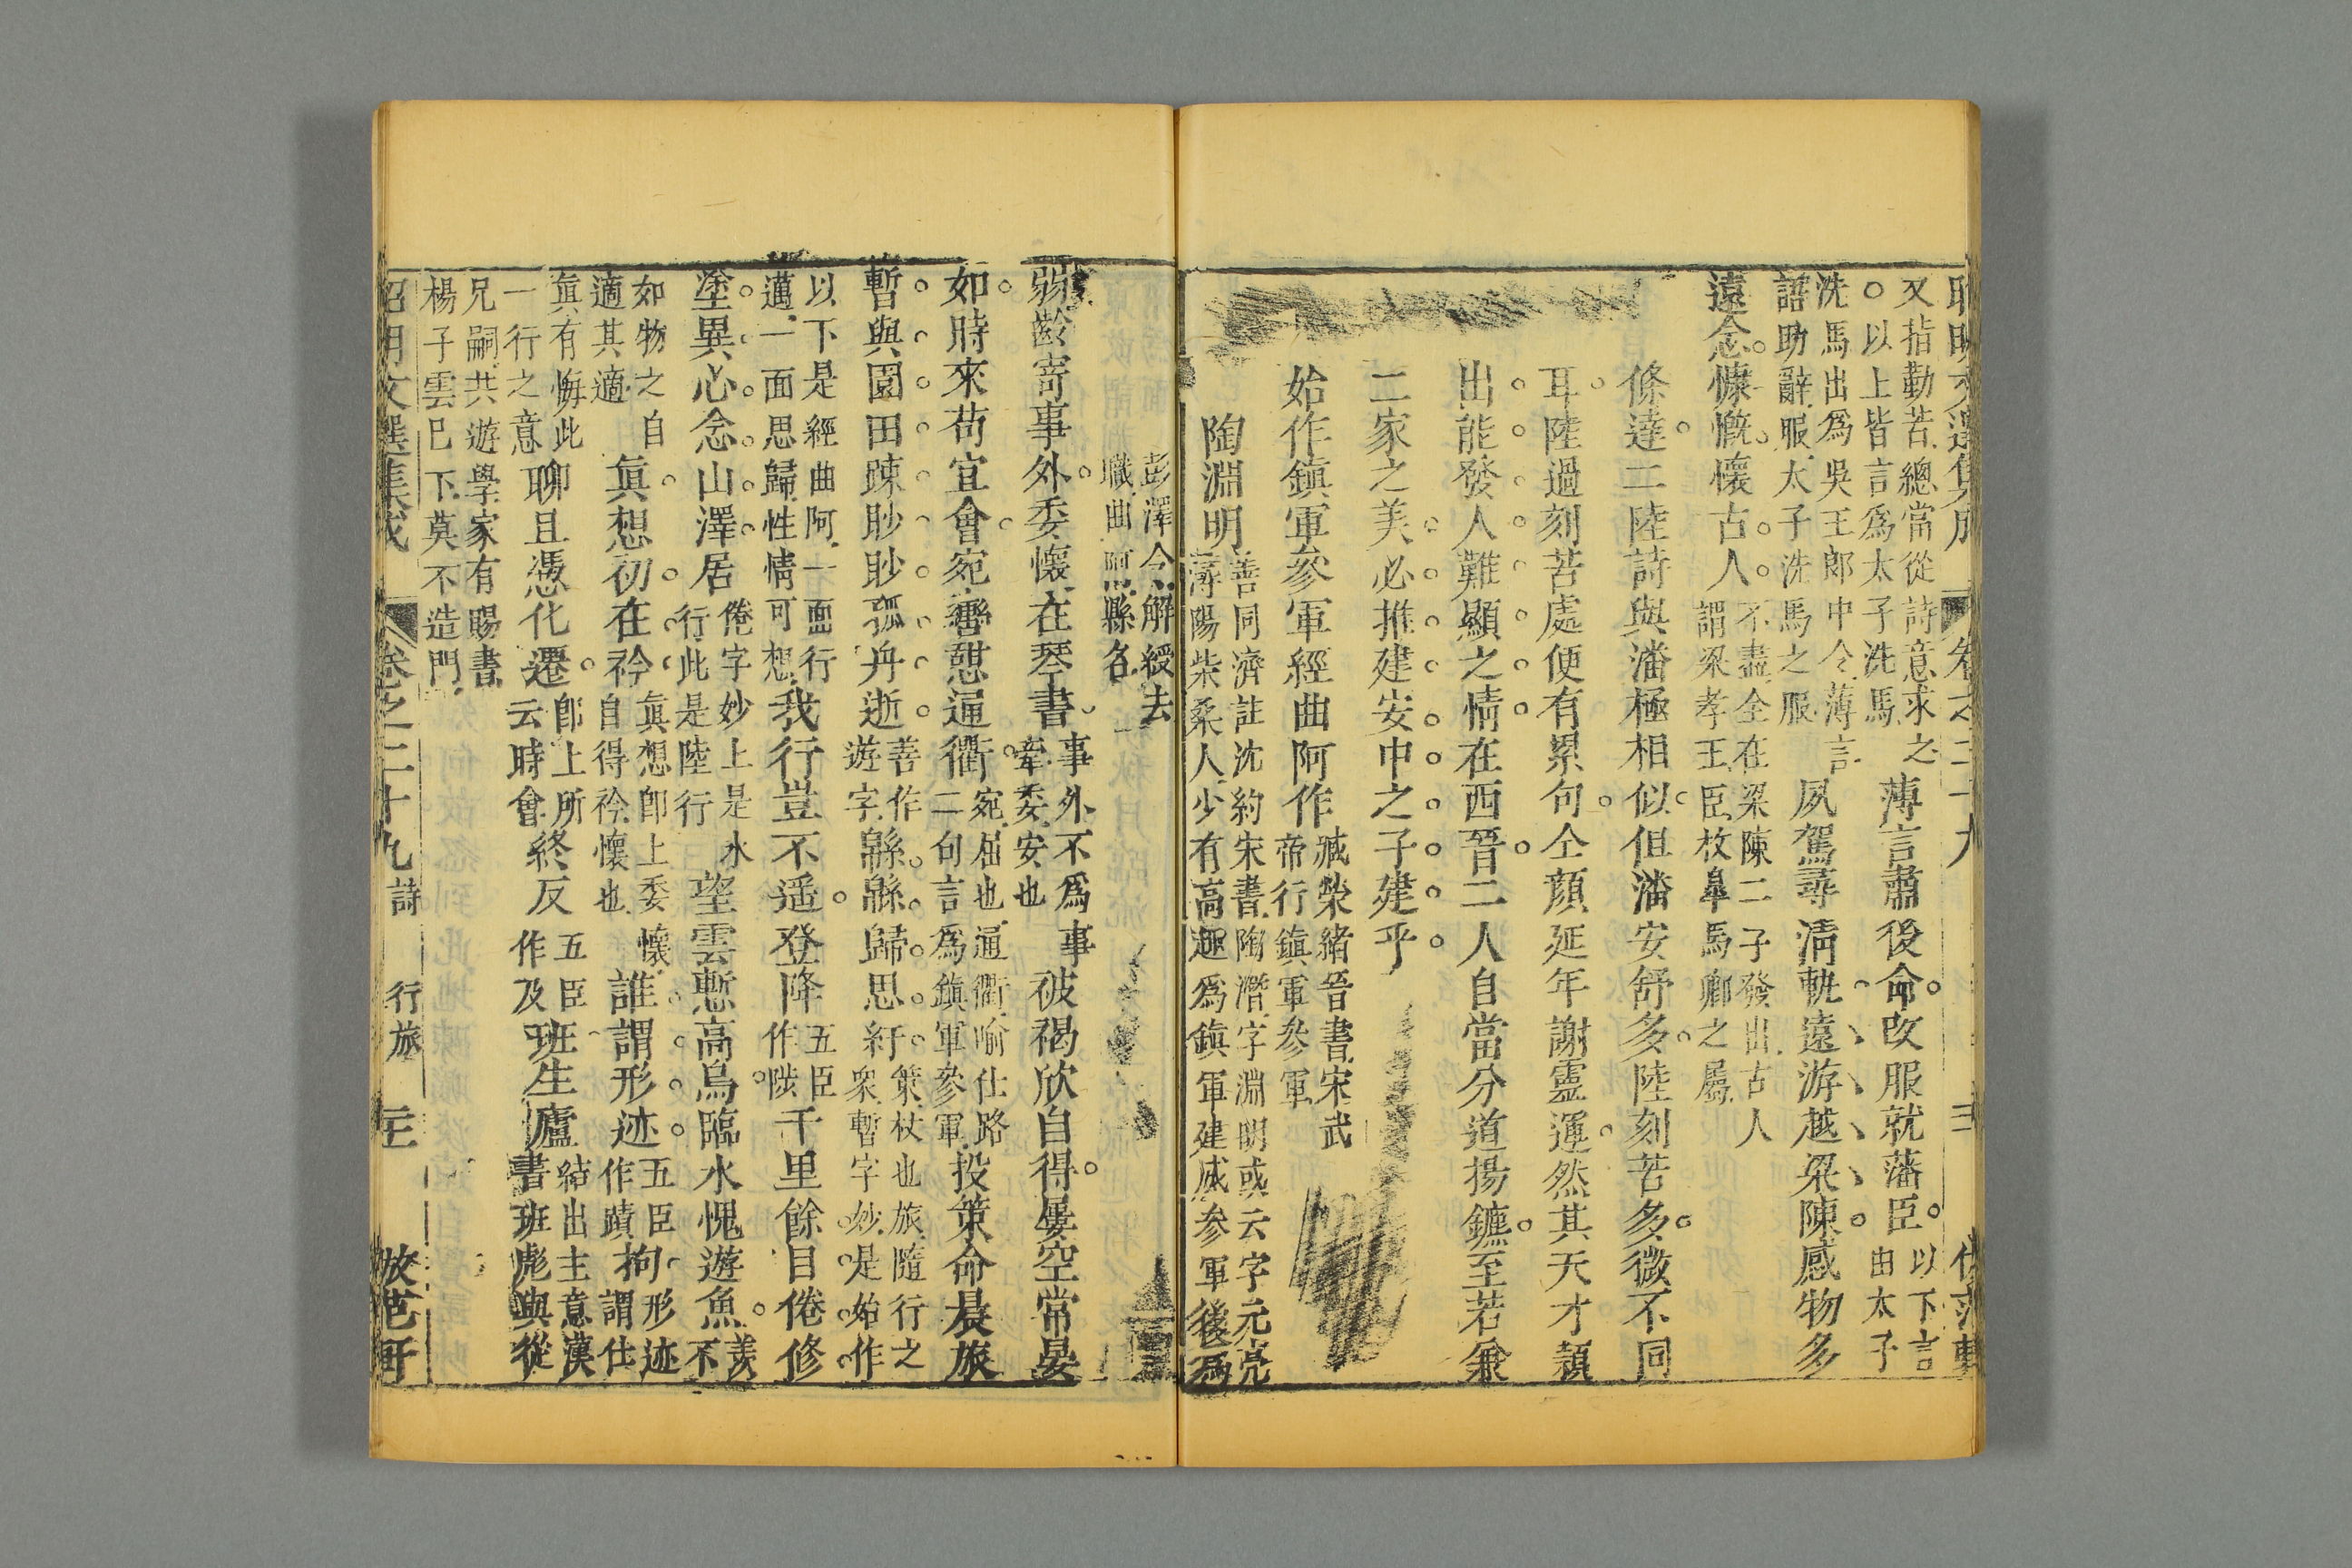 又指勤苦總當從詩意求之薄言肅後命改服就藩臣以下言由太子
以上皆言爲太子洗馬
洗馬出爲吳王郎中令薄言
語助辭服太子洗馬之服夙駕尋清軌遠游越梁陳感物多
遠念慷慨懷古人不盡全在梁陳二子發出古人謂梁孝王臣枚皐馬卿之屬
條達二陸詩與潘極相似但潘安舒多陸刻苦多微不同
耳陸過刻苦處便有累句仝顔延年謝靈運然其天才穎
出能發人難顯之情在西晉二人自當分道揚鑣至若兼
二家之美必推建安中之子建乎
始作鎮軍參軍經曲阿作臧榮緒晉書宋武帝行鎮軍參軍
陶淵明善同濟註沈約宋書陶潛字淵明或云字元亮潯陽柴桑人少有高趣爲鎮軍建威参軍後爲
彭澤令解綬去職曲阿縣名
弱齡寄事外委懷在琴書事外不爲事牽委安也被褐欣自得屢空常晏
如時來苟宜會宛轡憩通衢宛屈也通衢喻仕路二句言爲鎮軍參軍投策命晨旅
暫與園田踈眇眇孤舟逝善作遊字緜緜歸思紆策杖也旅隨行之衆暫字妙是始作
以下是經曲阿一面行邁一面思歸性情可想我行豈不遥登降五臣作陟千里餘目倦修
塗異心念山澤居倦字妙上是水行此是陸行望雲慙高鳥臨水愧遊魚羨不
如物之自適其適眞想初在衿眞想卽上委懷自得衿懷也誰謂形迹五臣作蹟拘形迹謂仕
眞有悔此一行之意聊且憑化遷卽上所云時會終反五臣作及班生廬結出主意漢書班彪與從
兄嗣共遊學家有賜書楊子雲已下莫不造門
昭明文選集成
卷之二十九詩
行旅